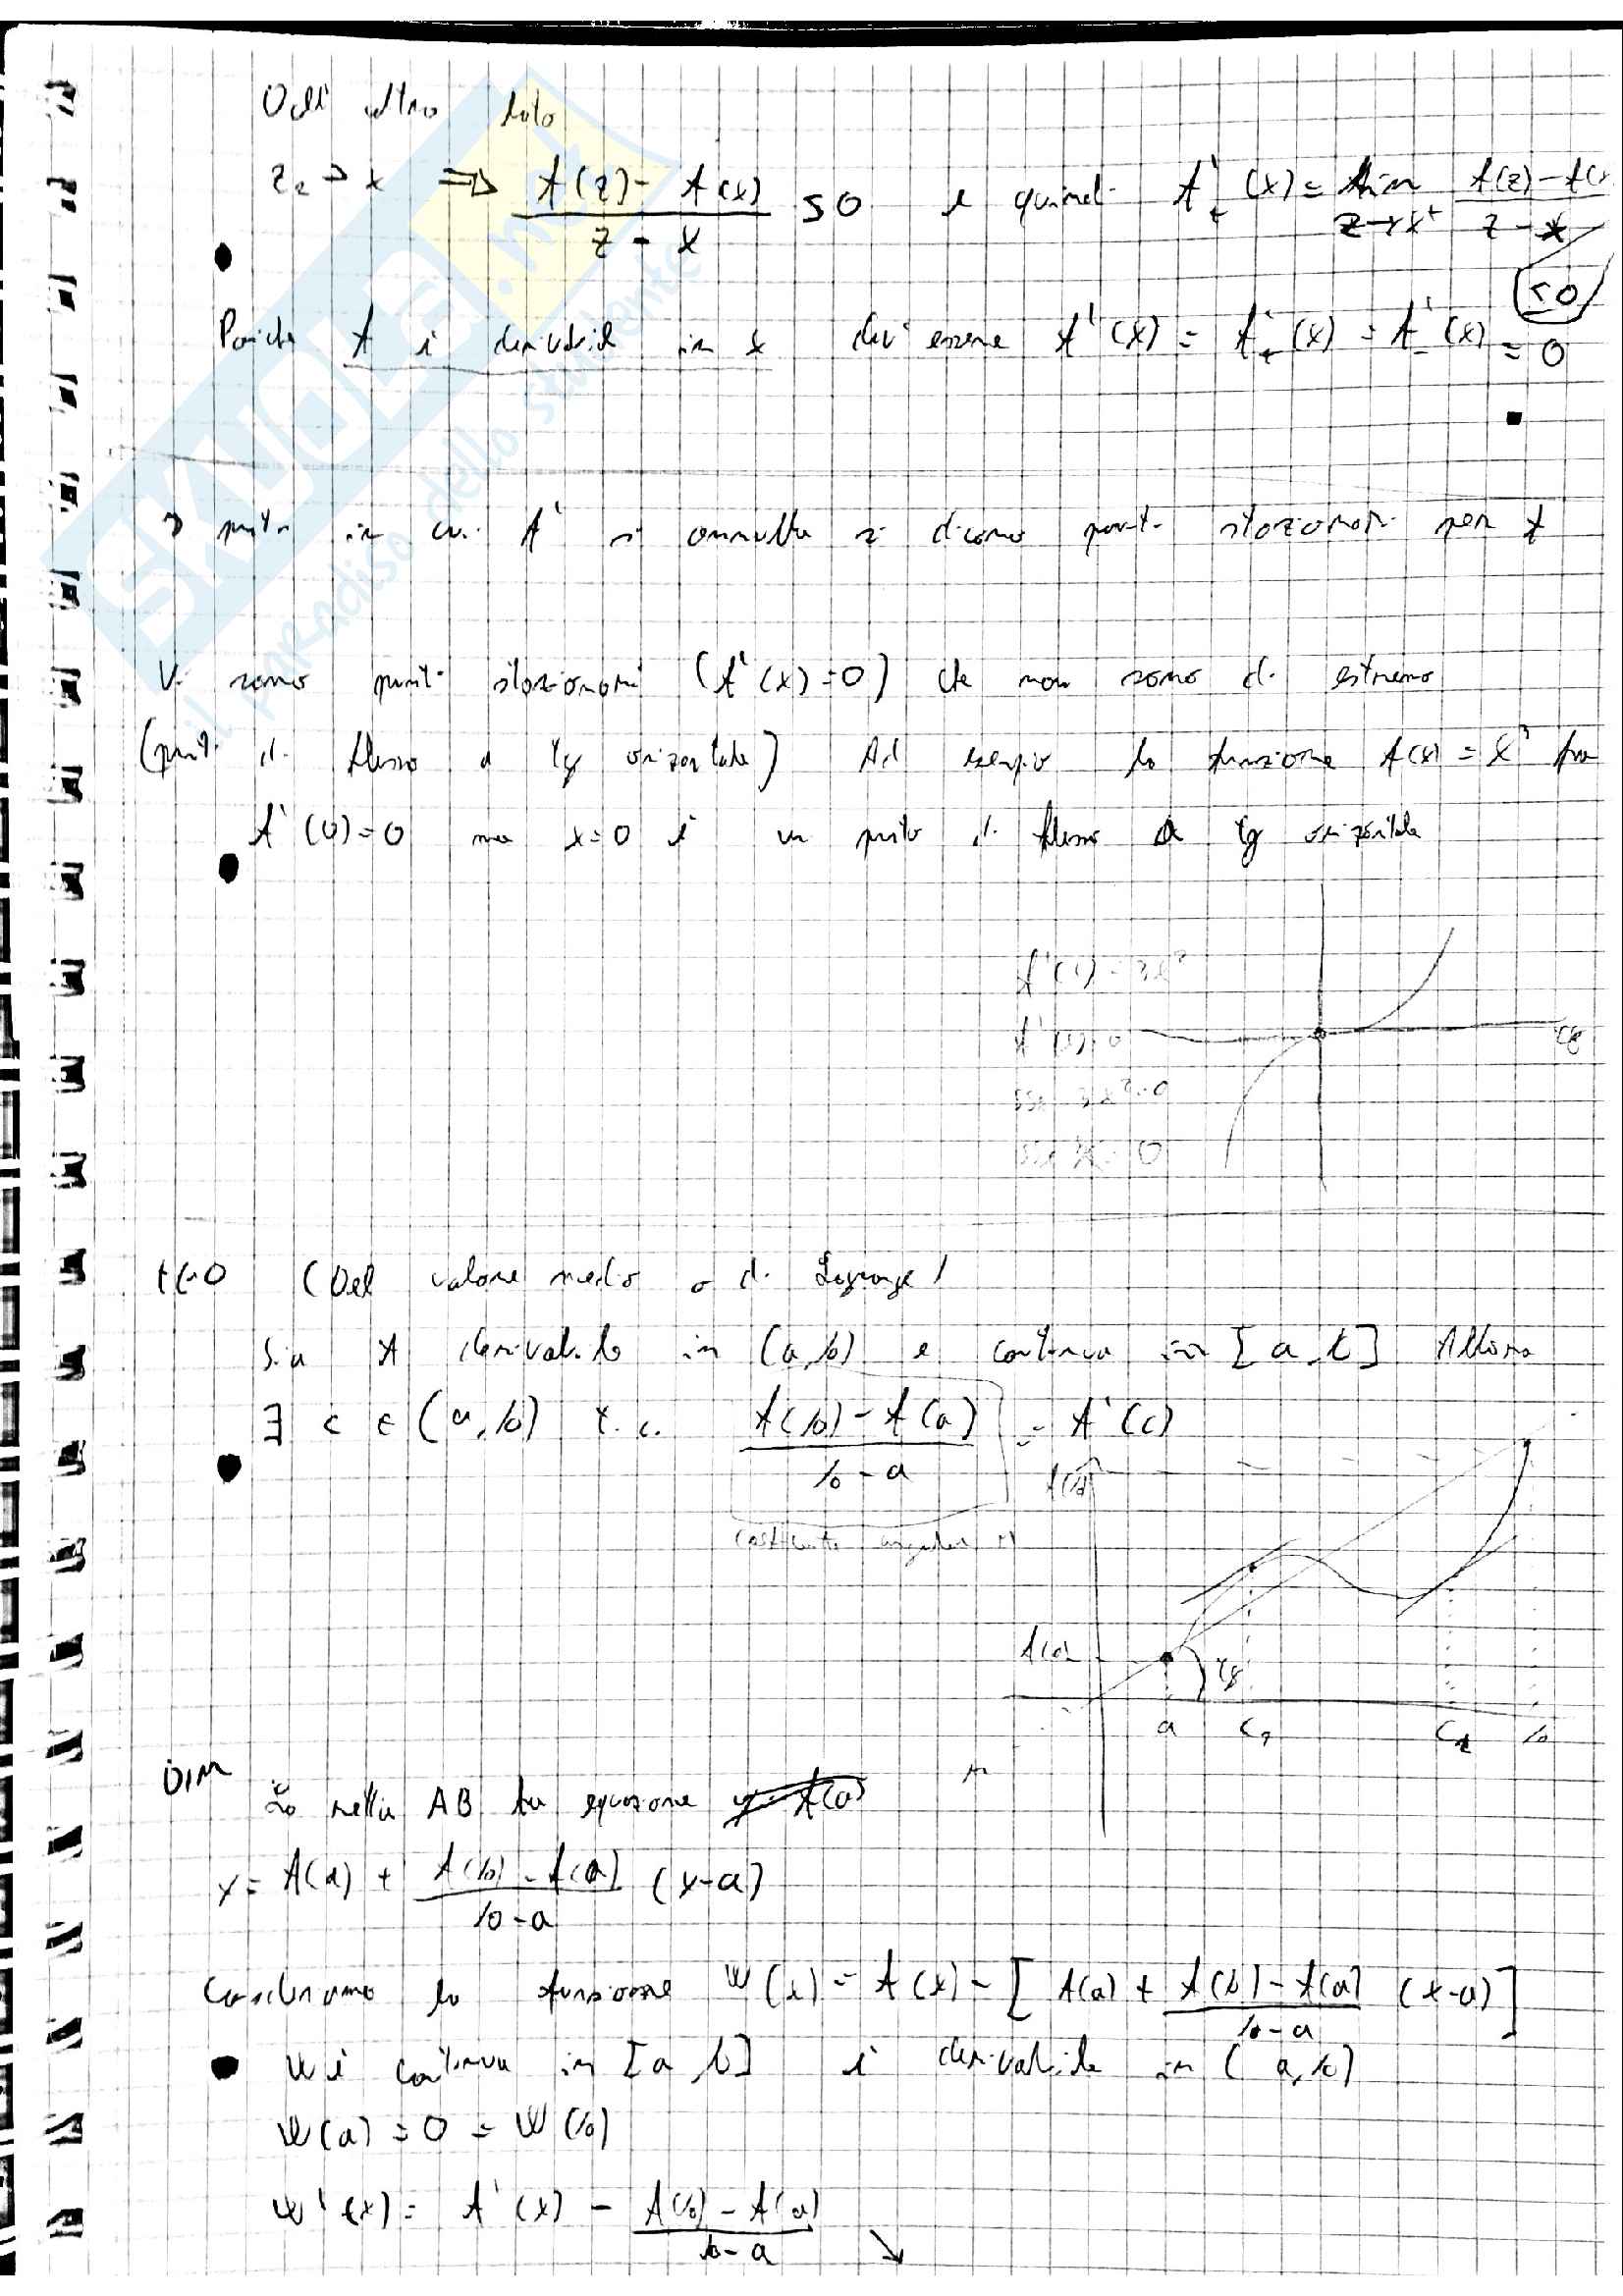 Dall'altro lato
z₂ → x ⇒ f(z) - f(x) / z - x ≤ 0 e quindi f'₊(x) = lim z→x⁺ f(z) - f(x / z - x
≤ 0
Poiché f è derivabile in x dev'essere f'(x) = f'₊(x) = f'₋(x) = 0
I punti in cui f' si annulla si dicono punti stazionari per f
Vi sono punti stazionari (f'(x)=0) che non sono di estremo
(punti di flesso a tg orizzontale) Ad esempio la funzione f(x) = x³ ha
f'(0)=0 ma x=0 è un punto di flesso a tg orizzontale
f'(x) = 3x²
f'(x)=0
tg
sse 3x²=0
sse x=0
teo (Del valore medio o di Lagrange)
Sia f derivabile in (a,b) e continua in [a,b] Allora
∃ c ∈ (a,b) t.c. f(b) - f(a) / b - a = f'(c)
f(b)
coefficiente angolare
f(a)
a c₁ c₂ b
DIM
La retta AB ha equazione
y = f(a) + f(b) - f(a) / b - a (x-a)
Consideriamo la funzione ψ(x) = f(x) - [ f(a) + f(b) - f(a) / b - a (x-a) ]
ψ è continua in [a,b] è derivabile in (a,b)
ψ(a) = 0 = ψ(b)
ψ'(x) = f'(x) - f(b) - f(a) / b - a ↘
SKUOLA.net
il paradiso dello studente